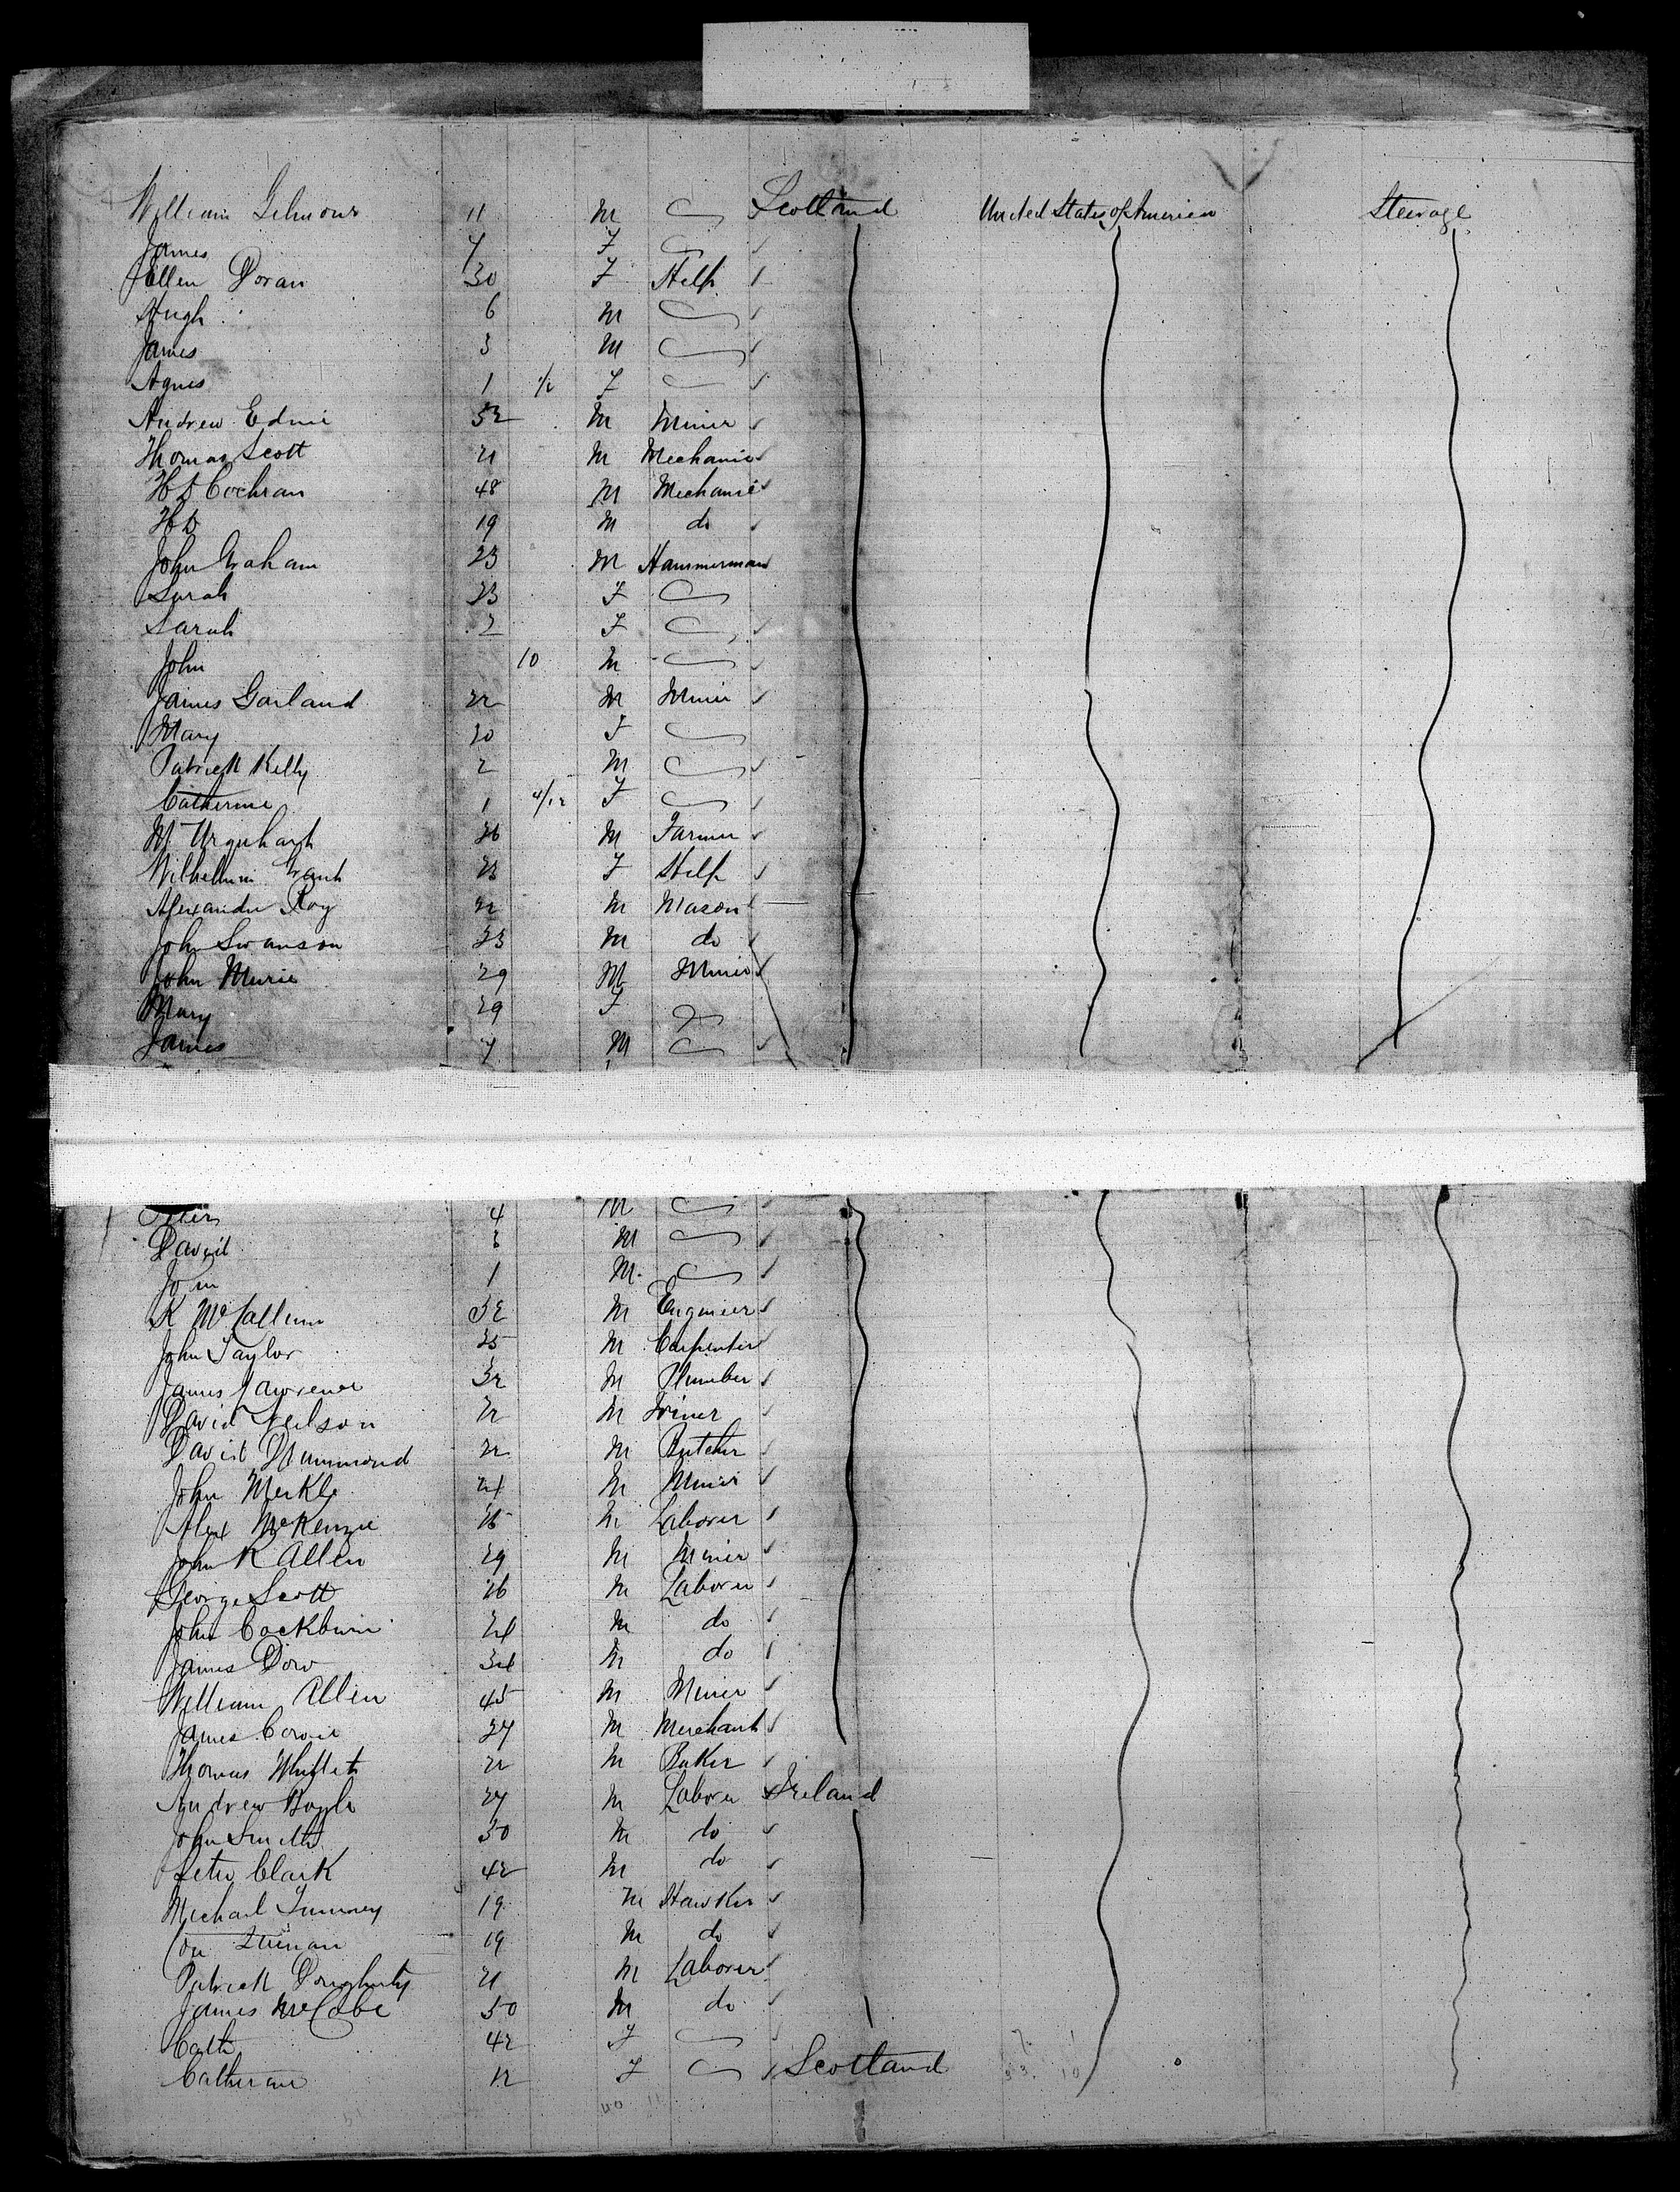 William Gilmour 11 M Scotland United States of America Steerage
James 7 F
Ellen Doran 30 F Help
Hugh 6 M
James 3 M
Agnes 1 1/2 F
Andrew Edmi 32 M Miner
Thomas Scott 21 M Mechanic
H D Cochran 48 M Mechanic
H D 19 M do
John Graham 23 M Hammerman
Sarah 23 F
Sarah 2 F
John 10 M
James Garland 22 M Miner
Mary 20 F
Patrick Kelly 2 M
Catherine 1 4/12 F
M Urquhart 26 M Farmer
Grant 23 F Help
Alexander Roy 22 M Mason
John Swanson 23 M do
John Murie 29 M Miner
Mary 29 F
James 7 M
Peter 4 M
David 3 M
John 1 M
K McCallum 32 M Engineer
John Taylor 25 M Carpenter
James Lawrence 32 M Plumber
David Neilson 22 M Joiner
David Drummond 22 M Butcher
John Merkle 24 M Miner
Alex McKenzie 26 M Laborer
John R Allen 29 M Miner
George Scott 26 M Laborer
John Cockburn 24 M do
James Dow 34 M do
William Allen 45 M Miner
James Cowie 27 M Merchant
Thomas 22 M Baker
Andrew Boyle 27 M Laborer Ireland
John Smith 30 M do
Peter Clark 42 M do
Michael 19 M Hawker
19 M do
Patrick Dougherty 21 M Laborer
James McCabe 50 M do
Cath 42 F
Catherine 12 F Scotland